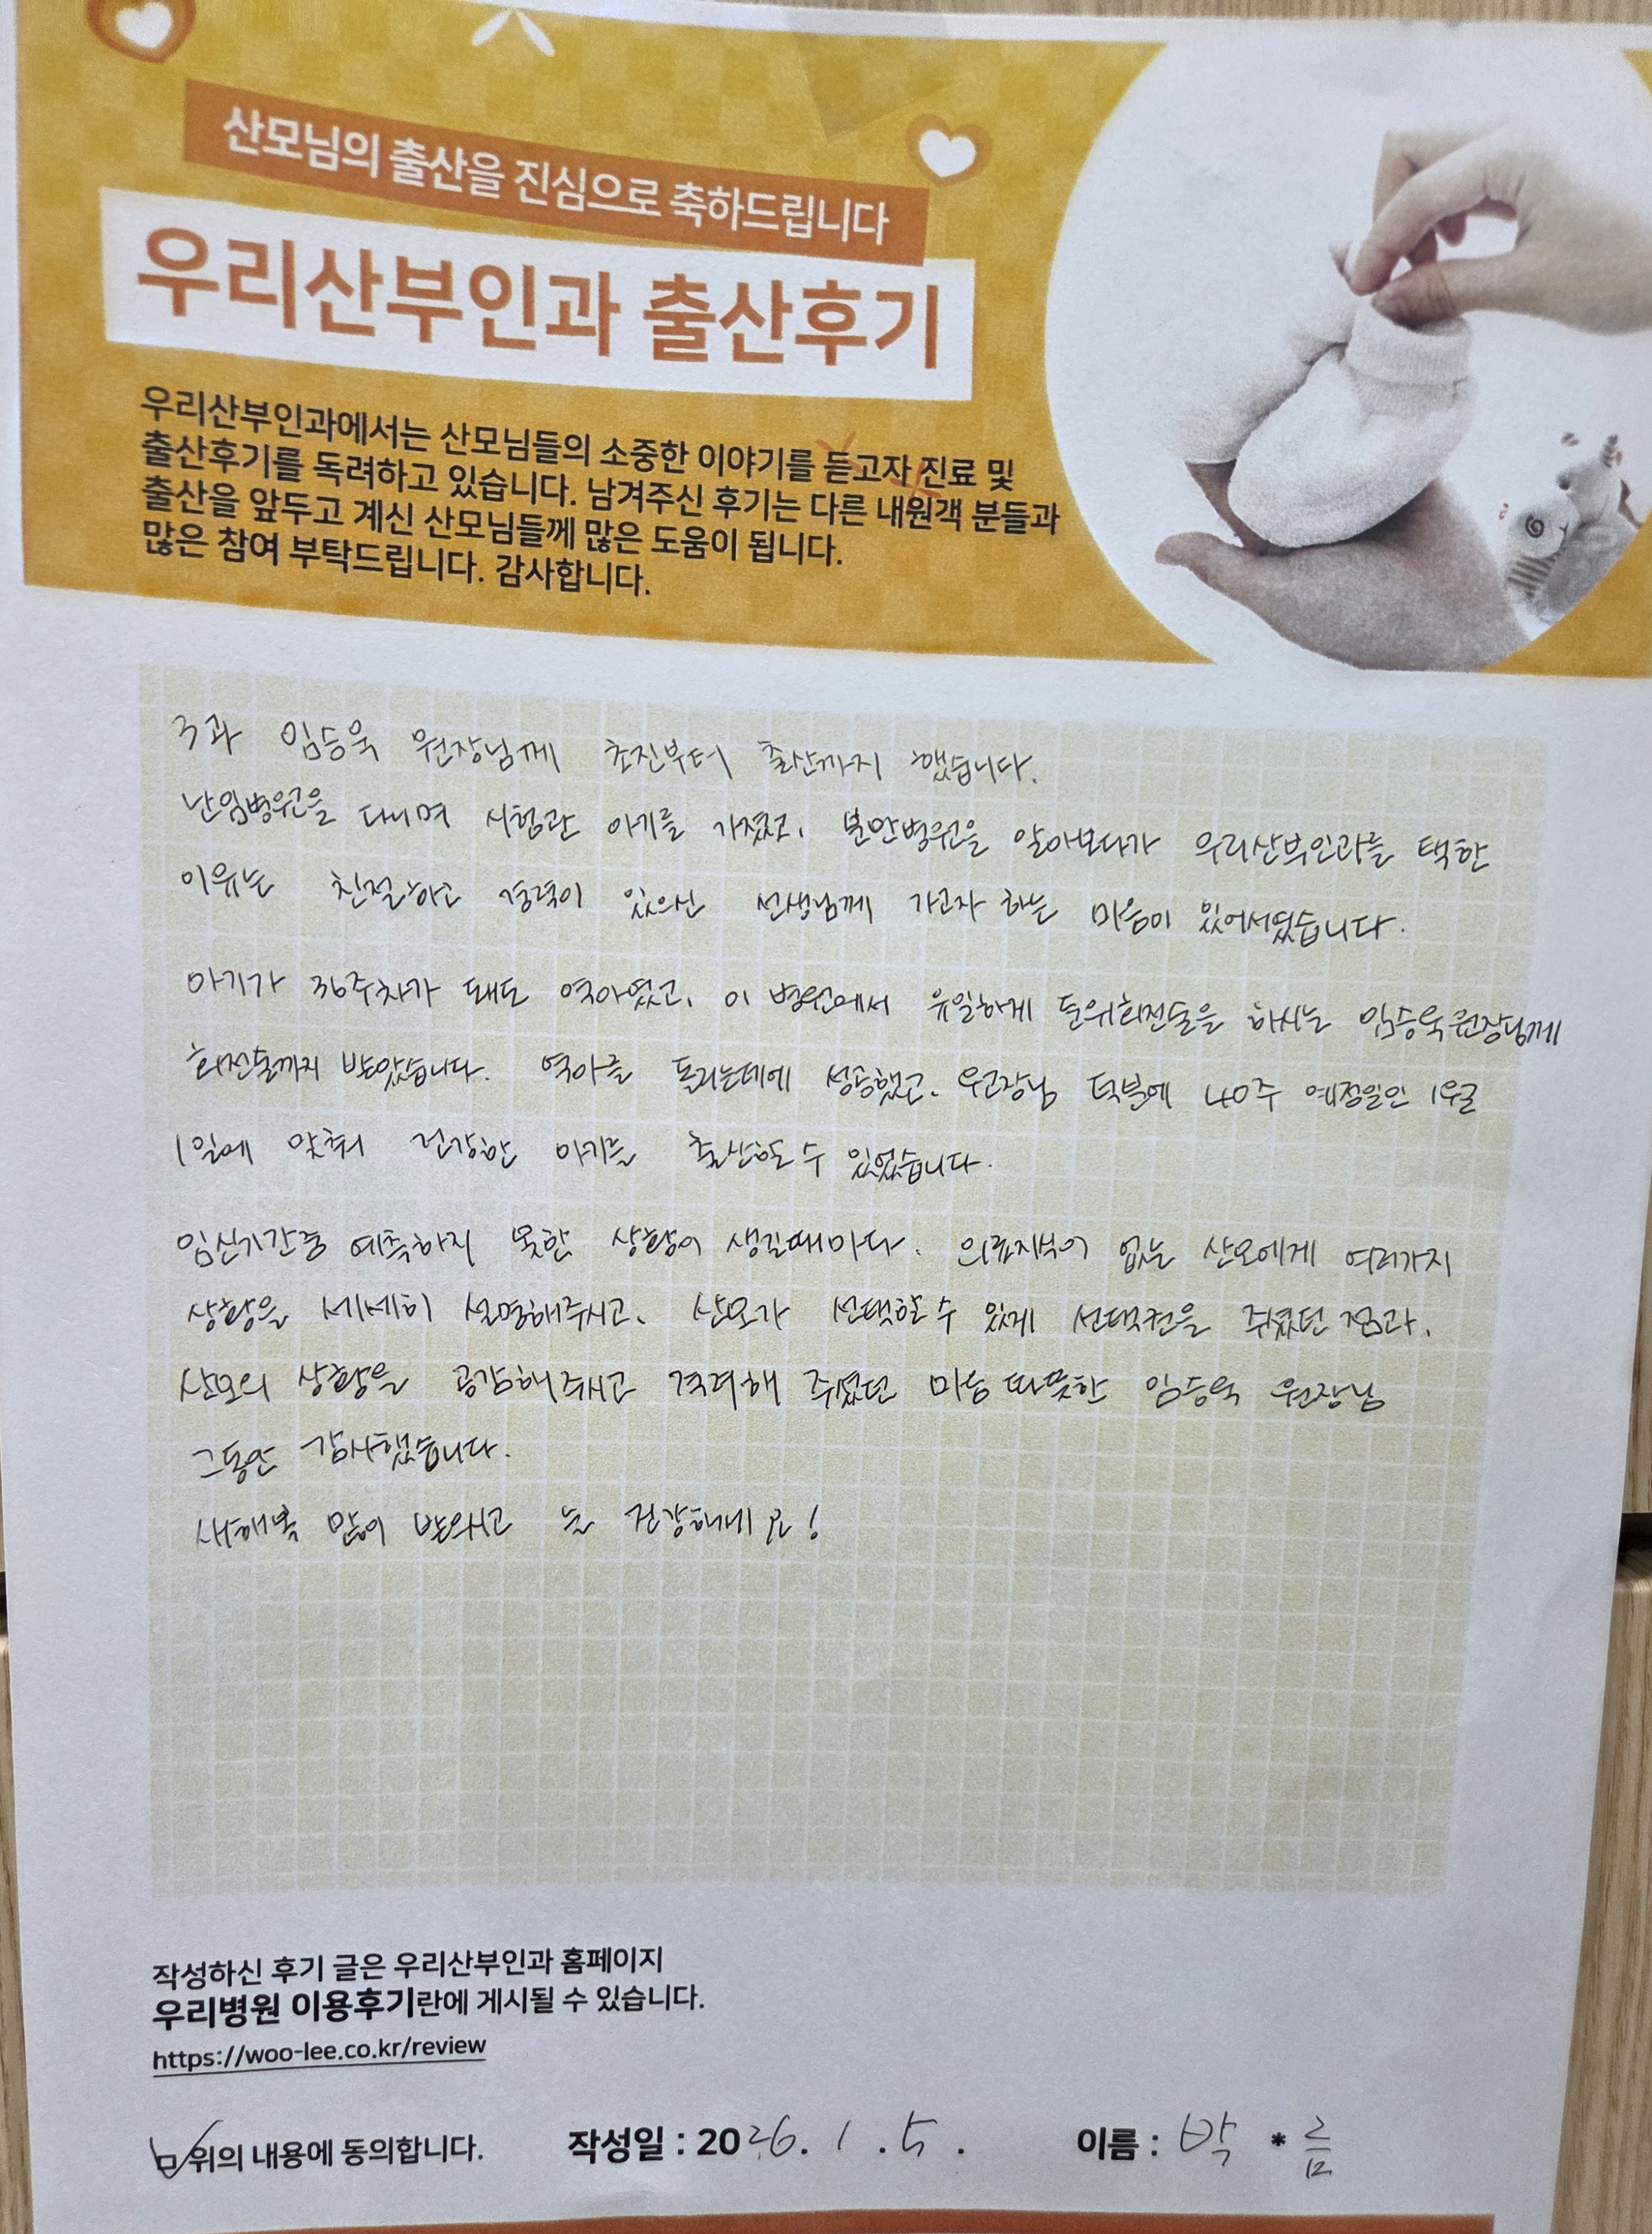 산모님의 출산을 진심으로 축하드립니다
우리산부인과 출산후기
우리산부인과에서는 산모님들의 소중한 이야기를 듣고자 진료 및
출산후기를 독려하고 있습니다. 남겨주신 후기는 다른 내원객 분들과
출산을 앞두고 계신 산모님들께 많은 도움이 됩니다.
많은 참여 부탁드립니다. 감사합니다.
3과 임승욱 원장님께 초진부터 출산까지 했습니다.
난임병원을 다니며 시험관 아기를 가졌고, 분만병원을 알아보다가 우리산부인과를 택한
이유는 친절하고 경력이 있으신 선생님께 가고자 하는 마음이 있어서였습니다.
아기가 36주차가 돼도 역아였고, 이 병원에서 유일하게 둔위회전술을 하시는 임승욱원장님께
회전술까지 받았습니다. 역아를 돌리는데에 성공했고, 원장님 덕분에 40주 예정일인 1월
1일에 맞춰 건강한 아기를 출산할 수 있었습니다.
임신기간중 예측하지 못한 상황이 생길때마다, 의료지식이 없는 산모에게 여러가지
상황을 세세히 설명해주시고, 산모가 선택할 수 있게 선택권을 주셨던 점과,
산모의 상황을 공감해주시고 격려해 주셨던 마음 따뜻한 임승욱 원장님
그동안 감사했습니다.
새해복 많이 받으시고 늘 건강하세요!
작성하신 후기 글은 우리산부인과 홈페이지
우리병원 이용후기란에 게시될 수 있습니다.
https://woo-lee.co.kr/review
위의 내용에 동의합니다. 작성일 : 2026. 1. 5. 이름 : 박 * 름